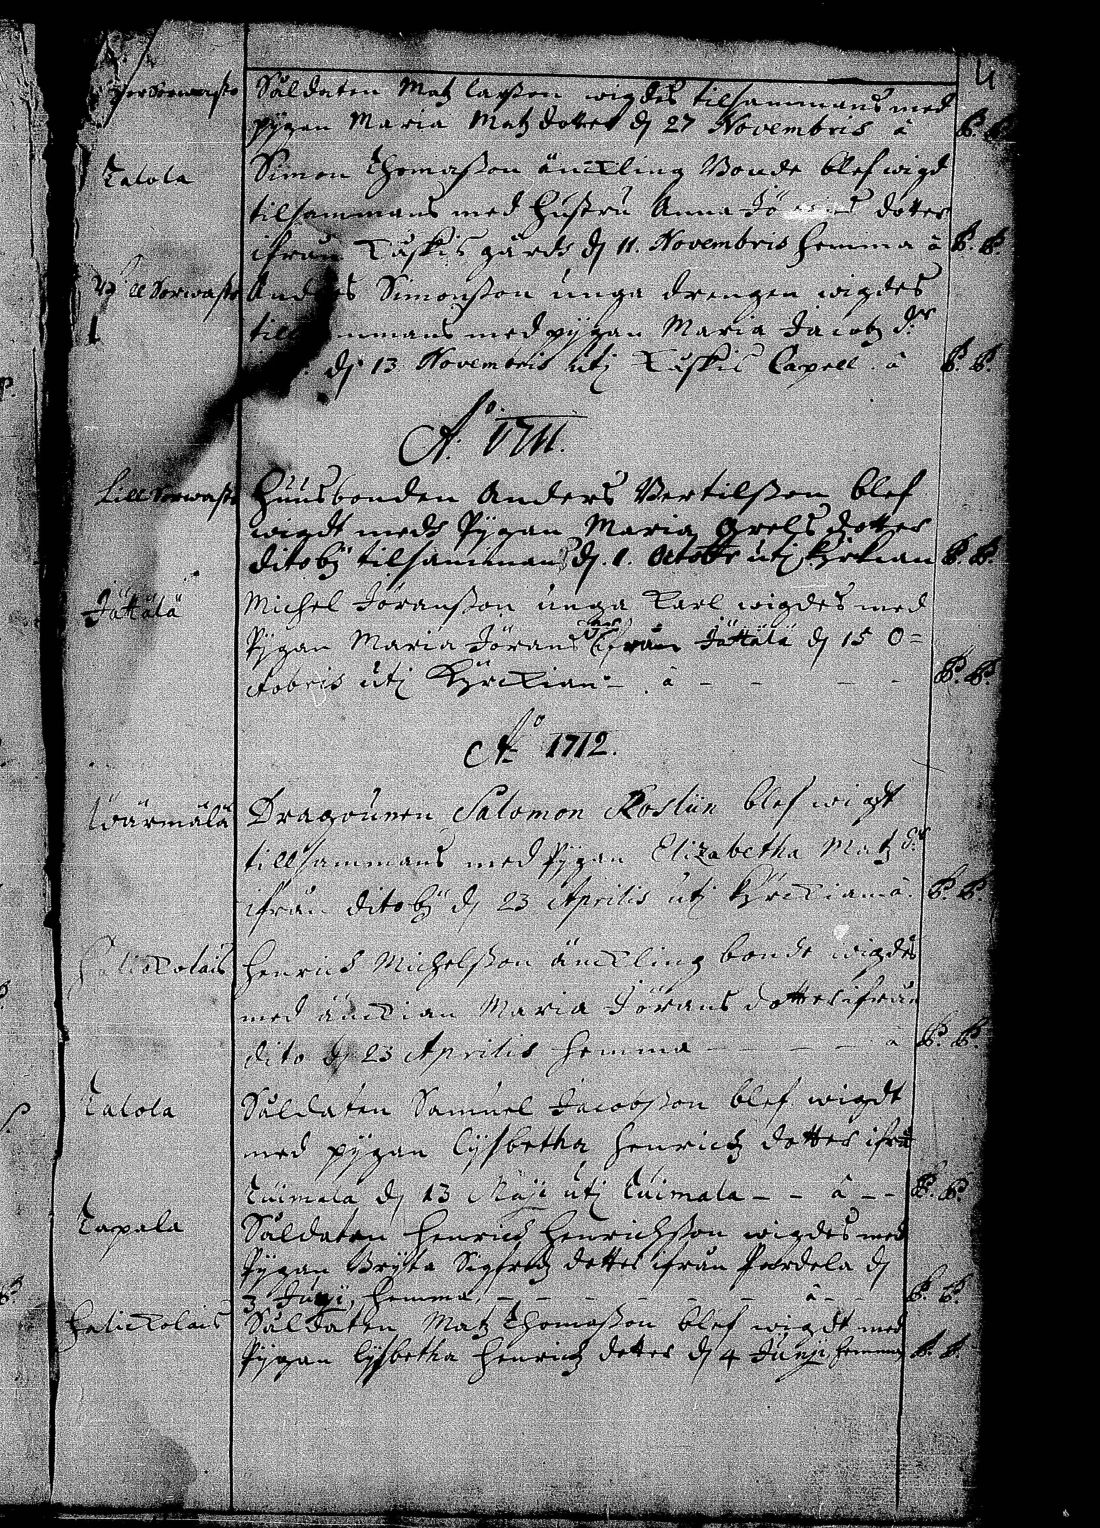 4
Sorwasto Såldaten Matz Larsson wigdes tilsammans med
pÿgan Maria Matzdotter dj 27 Novembris â
Talola Simon Thomasson änckling Bonde blef wigd
tilsammans med Hustru Anna dotter
ifrån Kuskis gårdh dj 11. Novembris hemma â
Lill Sorwasto Anders Simonsson unga drengen wigdes
tillsammans med pÿgan Maria Jacobz dr
dj 13 Novembris utj Kuskis Capell â
Ao 1711.
Lill Sorwasto Huusbonden Anders Bertilsson blef
wigdt medh Pÿgan Maria Grelsdotter
ditobÿ tilsammans dj. 1. Octobr utj kÿrkian
Jättälä Michel Jöransson unga Karl wigdes med
Pÿgan Maria Jörans dr ifrån Jättälä dj 15 O=
ctobris utj Kÿrckian – â – – – – –
Ao 1712.
Wärmälä Dragounen Salomon Rosliin blef wigdt
tillsammans med Pÿgan Elizabetha Matz dr
ifrån ditobÿ dj 23 Aprilis utj kÿrckian â
Henrich Michelsson änckling bonde wigdes
med änckian Maria Jörans dotter ifrån
dito dj 23 Aprilis hemma – – – – â
Talola Såldaten Samuel Jacobsson blef wigdt
med pÿgan Lÿsbetha Henrichz dotter ifrå
Tuimala dj 13 Maÿi utj Tuimala – – â – –
Tapala Såldaten Henrich Henrichsson wigdes med
Pÿgan Brÿta Sigfredz dotter ifrån Pordela dj
3 Junÿ, hemma – – – – – – â – –
Såldaten Matz Thomasson blef wigdt med
Pÿgan Lÿsbetha Henrichz dotter dj 4 Junÿi hemma